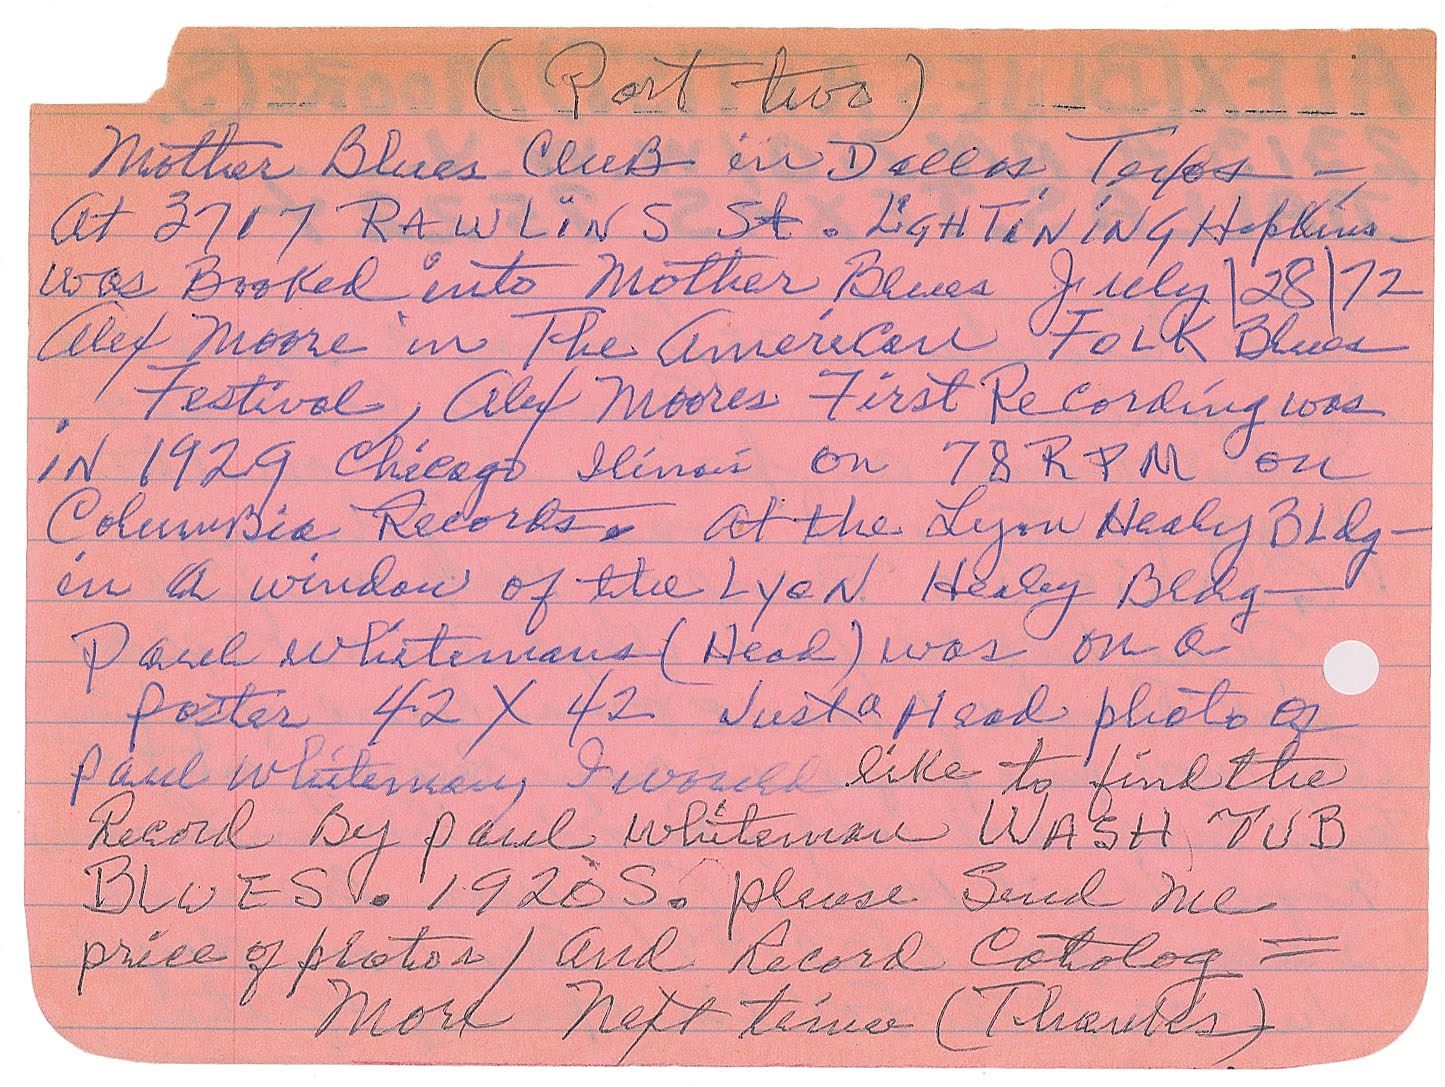 (Part two)
Mother Blues CluB in Dallas, Texas –
At 3717 RAWLiNS St. LiGHTiNiNG Hopkins –
was Booked into Mother Blues July|28|72
Alex Moore in The American FOLK Blues
Festival, Alex Moores First Recording was
iN 1929 Chicago Ilinois on 78 RPM on
ColumBia Records. at the Lyon Healy BLdg –
in a window of the LyoN Healey Bldg –
Paul Whitemans (Head) was on a
poster 42 X 42 Just a Head photo of
paul Whiteman, I would like to find the
Record By paul Whiteman WASH TUB
BLUES. 1920S. please Send me
price of photos / and Record Catolog =
More Next time (Thanks)